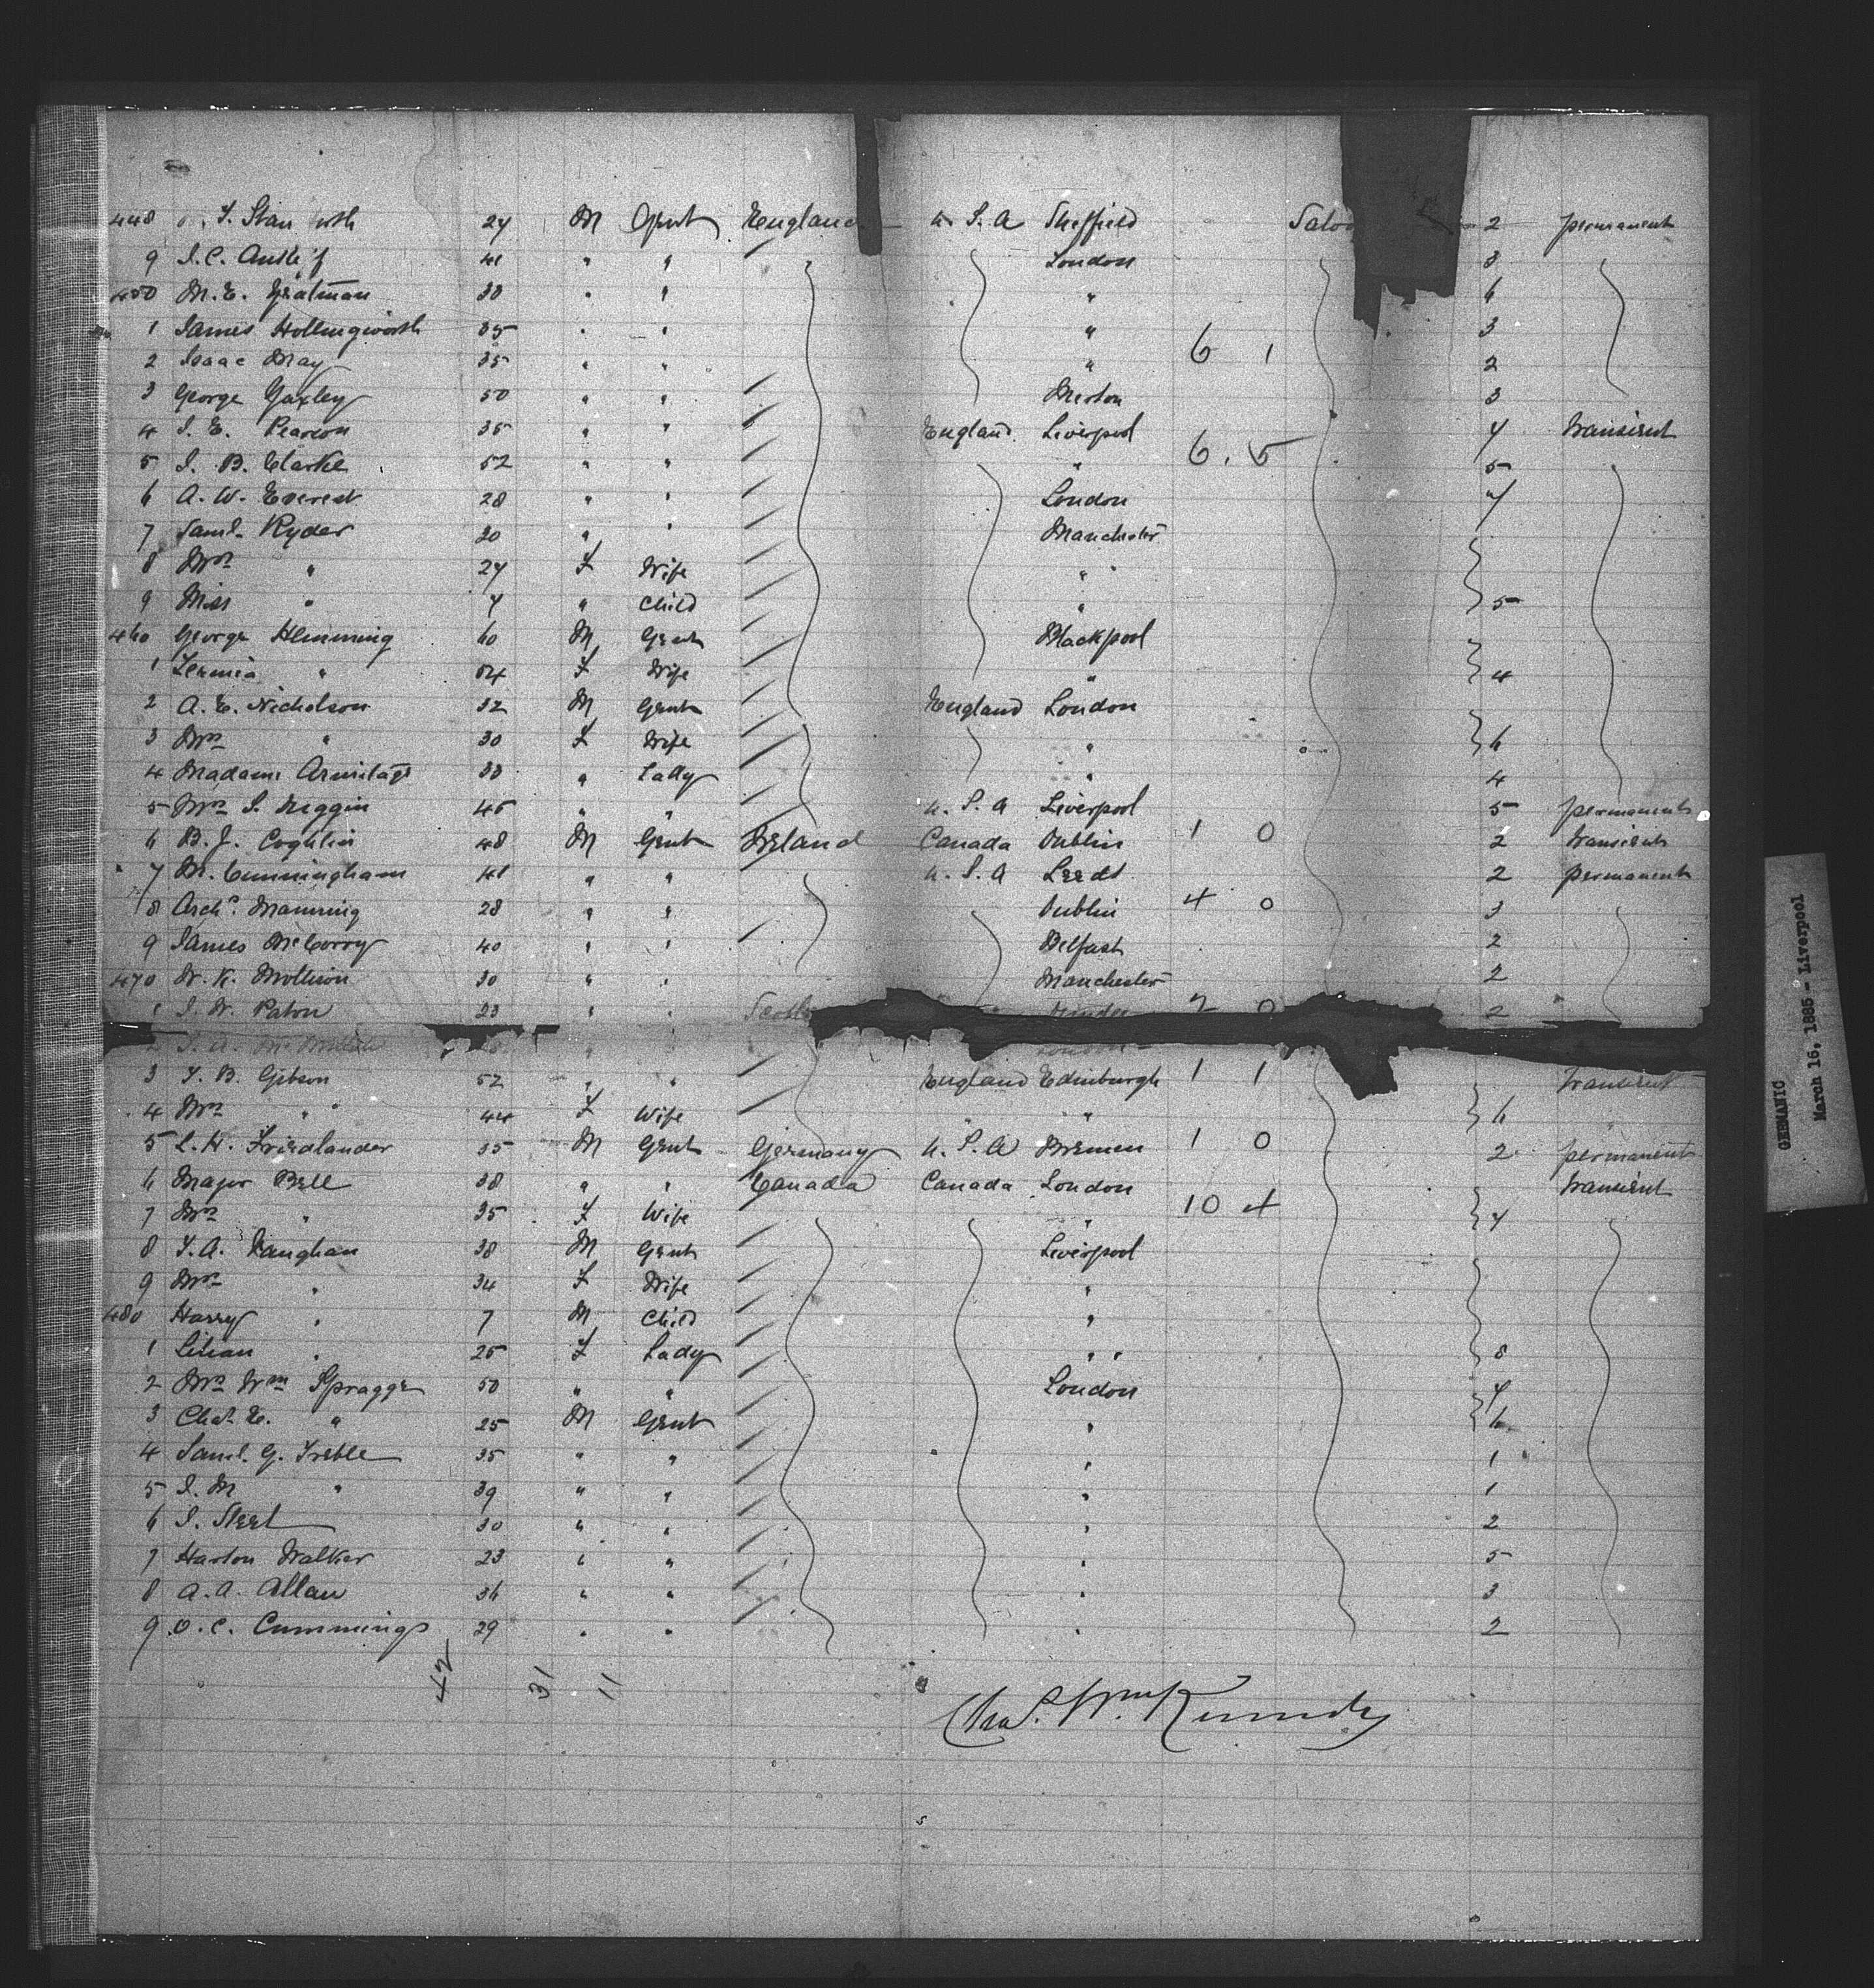 448 24 M Gent England U.S.A Sheffield 2 permanent
9 41 " " London 3
450 M.E. 38 " " " 6
1 James Hollingworth 35 " " " 3
2 Isaac May 35 " " " 6 1 2
3 George Yaxley 50 " " Merton 3
4 J.E. Pearson 35 " " England Liverpool 4 transient
5 J.B. Clarke 52 " " " 6.5 5
6 A.W. Everest 28 " " London 4
7 Saml. Ryder 30 " Manchester
8 Mrs " 24 F Wife "
9 Miss " 4 " Child " 5
460 George Hemming 60 M Gent Blackpool
1 " 54 F Wife " 4
2 A.E. Nicholson 32 M Gent England London
3 Mrs " 30 F Wife " 6
4 Madame Armitage 38 " Lady " 4
5 Mrs 45 " " U.S.A Liverpool 5 permanent
6 B.J. Coghlin 48 M Gent Ireland Canada Dublin 1 0 2 transient
7 M. Cunningham 41 " " U.S.A Leeds 2 permanent
8 Archd. Manning 28 " " Dublin 4 0 3
9 James McCorry 40 " " Belfast 2
470 W.K. 30 " " Manchester 2
1 J.W. Paton 23 " " 2 0 2
3 T.B. Gibson 52 " " England Edinburgh 1 1 transient
4 Mrs " 44 F Wife " 6
5 L.H. Friedlander 35 M Gent Germany U.S.A Bremen 1 0 2 permanent
6 Major Bell 38 " " Canada Canada London transient
7 Mrs " 35 F Wife " 10 4 4
8 T.A. Vaughan 38 M Gent Liverpool
9 Mrs " 34 F Wife "
480 Harry " 7 M Child "
1 Lilian " 25 F Lady " 8
2 Mrs Wm Spragge 50 " " London 4
3 Chas. E. " 25 M Gent " 6
4 Saml. G. Treble 35 " " " 1
5 J.M " 39 " " " 1
6 J. Steel 30 " " " 2
7 Harton Walker 23 " " " 5
8 A.A. Allan 36 " " " 3
9 O.C. Cummings 29 " " " 2
42 31 11
Chas. Wm Kennedy
GERMANIC
March 16, 1885 - Liverpool